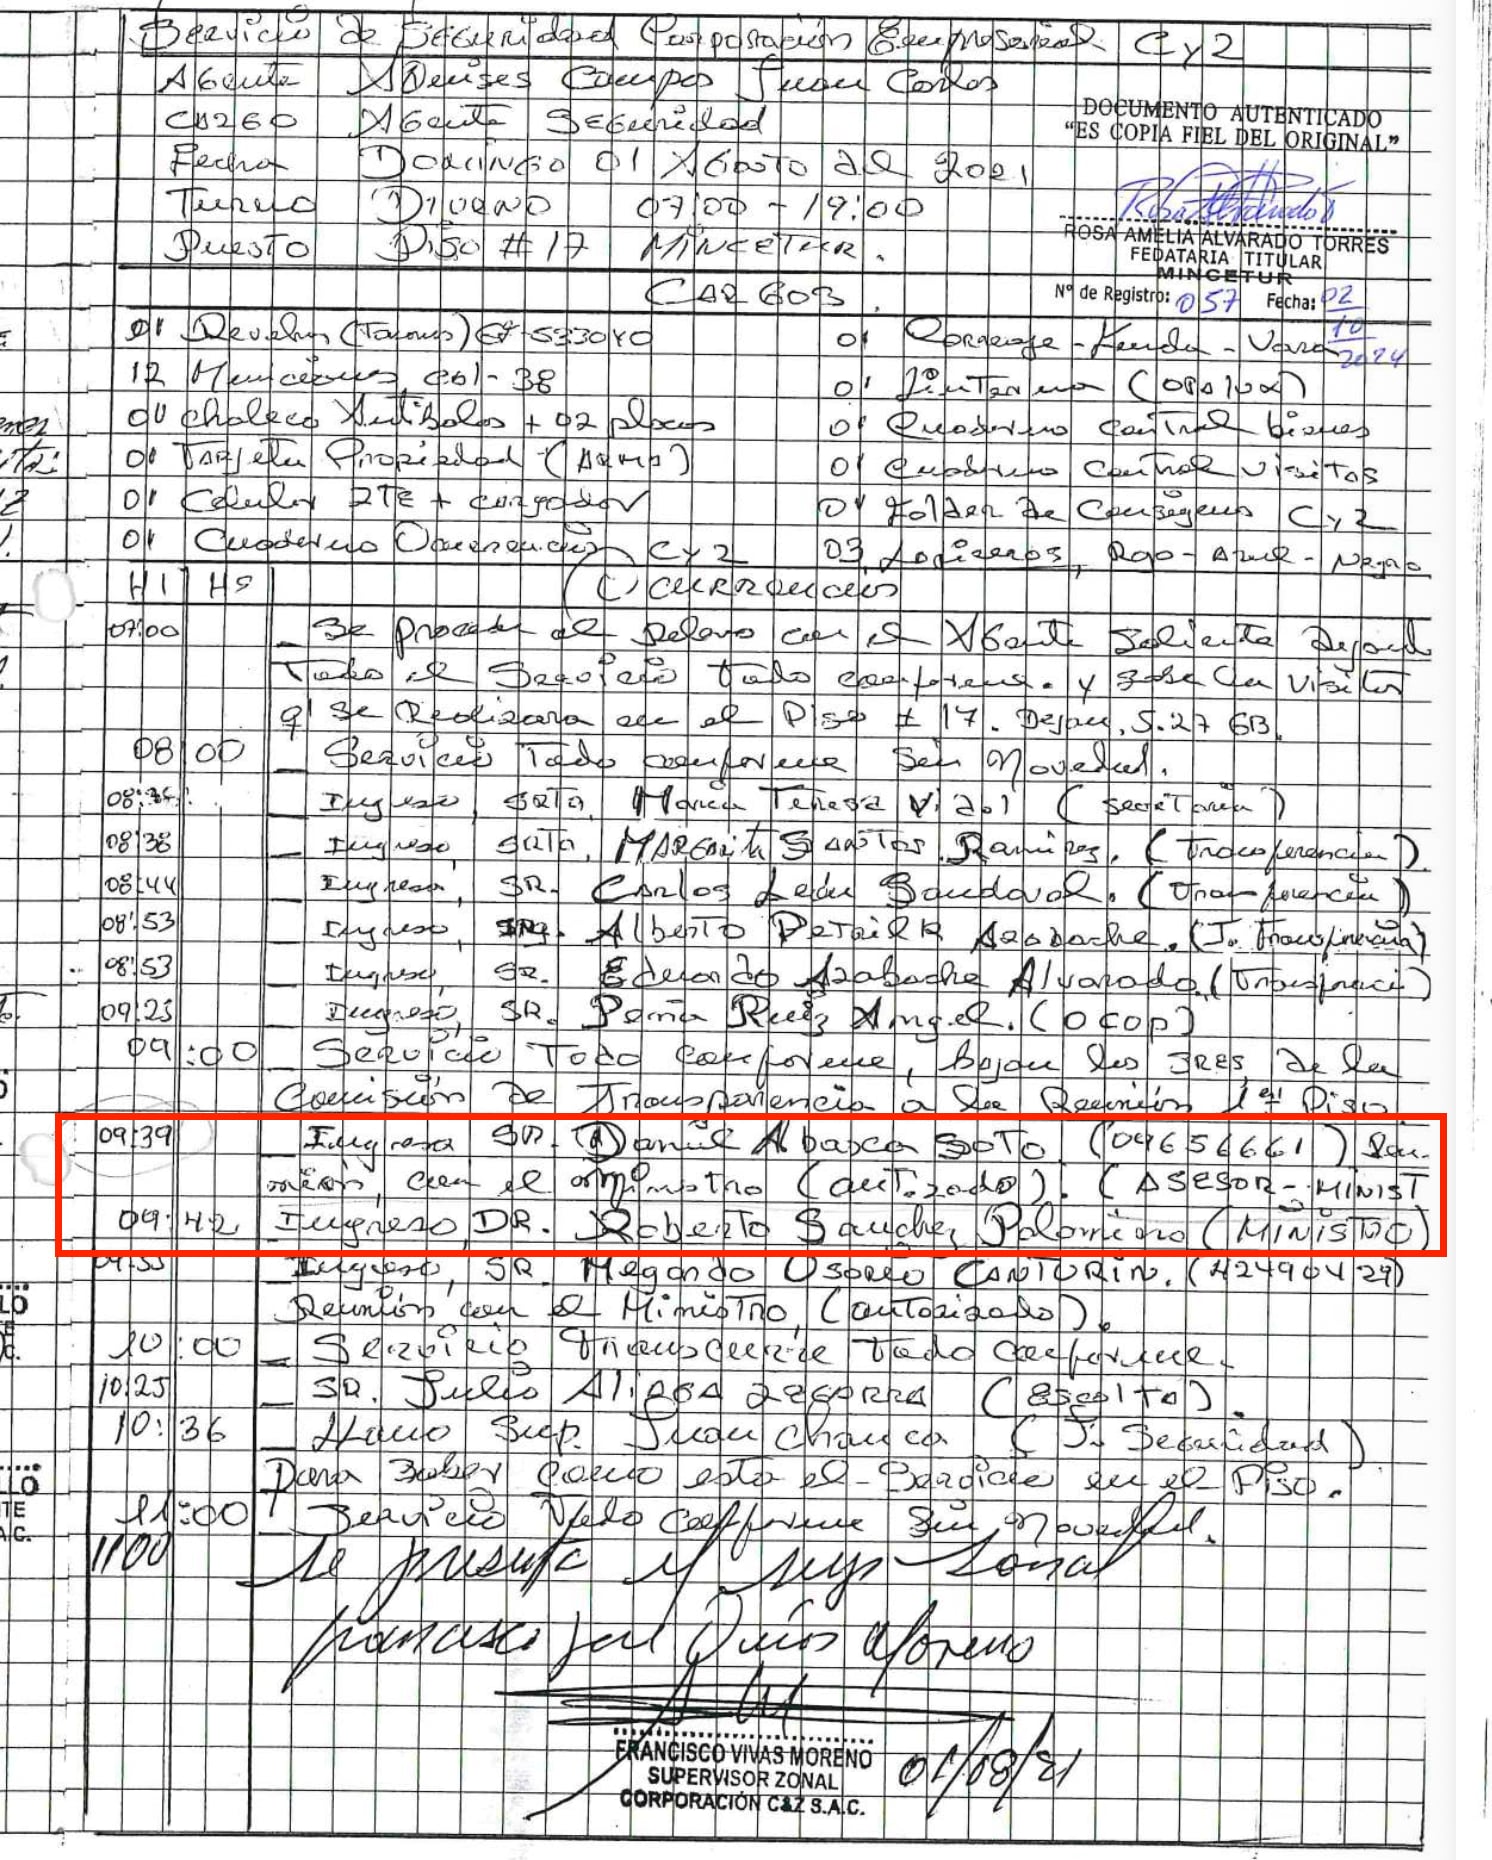 Servicio de Seguridad Corporación Empresarial CyZ
Agente Meneses Campos Juan Carlos
Agente Seguridad
DOCUMENTO AUTENTICADO
"ES COPIA FIEL DEL ORIGINAL"
Fecha Domingo 01 Agosto del 2021
Turno Diurno 07:00 - 19:00
Puesto Piso # 17 MINCETUR.
ROSA AMELIA ALVARADO TORRES
FEDATARIA TITULAR
MINCETUR
Nº de Registro: 057 Fecha: 02
10
2024
01 Revolver (Taurus)
01 Correaje - Funda - Vara
12 Municiones Col - 38
01 Linterna
01 Chaleco Antibalas + 02 placas
01 Cuaderno control bienes
01 Tarjeta Propiedad (Arma)
01 Cuaderno control visitas
01 Celular ZTE + cargador
01 Folder de Consignas CyZ
01 Cuaderno Ocurrencias CyZ
03 Lapiceros, Rojo - Azul - Negro
HI HS Ocurrencias
07:00 _ Se procede al Relevo con el Agente Saliente Dejand
Todo el Servicio todo conforme. y sobre la visita
q' se Realizara en el Piso # 17. Dejan 5.27 GB.
08:00 _ Servicio Todo conforme Sin Novedad.
_ Ingreso, SRTA. Maria Teresa Vidal (Secretaria)
08:38 _ Ingreso, SRTA. MARGARITA SANTOS Ramirez. (Transferencia)
08:44 _ Ingreso, SR. Carlos León Sandoval. (Transferencia)
08:53 _ Ingreso, Alberto Patrick Azabache. (J. Transferencia)
08:53 _ Ingreso, SR. Eduardo Azabache Alvarado. (Transferenci)
09:25 _ Ingreso, SR. Peña Ruiz Angel. (OCOP)
09:00 _ Servicio Todo conforme, bajan los SRES. de la
Comisión de Transparencia a la Reunión 1er Piso
09:39 Ingreso SR. Daniel Abarca SOTO (09656661) Reu-
nión, con el Ministro (autorizado). (ASESOR - MINIST
09:42 Ingreso, DR. Roberto Sanchez Palomino (MINISTRO)
Ingreso, SR. Osorio CANTURIN. (42490429)
Reunión con el Ministro, (autorizado).
10:00 _ Servicio transcurre todo conforme.
10:25 _ SR. Julio Aliaga ZEGARRA (Escolta).
10:36 _ Llamo Sup. Juan Chauca (J. Seguridad)
Para Saber como esta el Servicio en el Piso.
11:00 Servicio Todo Conforme Sin Novedad.
1100 Se presenta el sup zonal
Francisco Vivas Moreno
FRANCISCO VIVAS MORENO
SUPERVISOR ZONAL
CORPORACIÓN C&Z S.A.C.
01/08/21